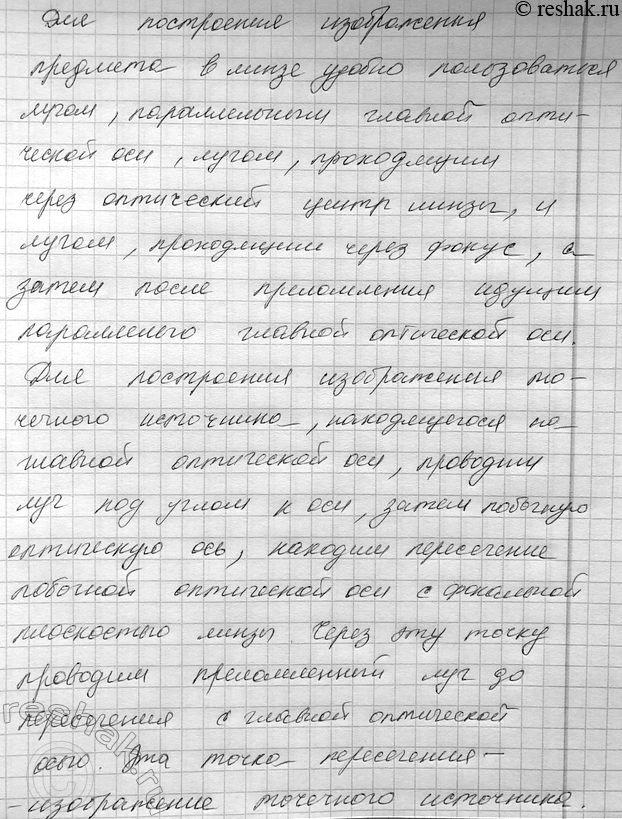 © reshak.ru
Для построения изображения
предмета в линзе удобно пользоваться
лучом, параллельным главной опти-
ческой оси, лучом, проходящим
через оптический центр линзы, и
лучом, проходящим через фокус, а
затем после преломления идущим
параллельно главной оптической оси.
Для построения изображения то-
чечного источника, находящегося на
главной оптической оси, проводим
луч под углом к оси, затем побочную
оптическую ось, находим пересечение
побочной оптической оси с фокальной
плоскостью линзы. Через эту точку
проводим преломленный луч до
пересечения с главной оптической
осью. Эта точка пересечения -
-изображение точечного источника.
reshak.ru